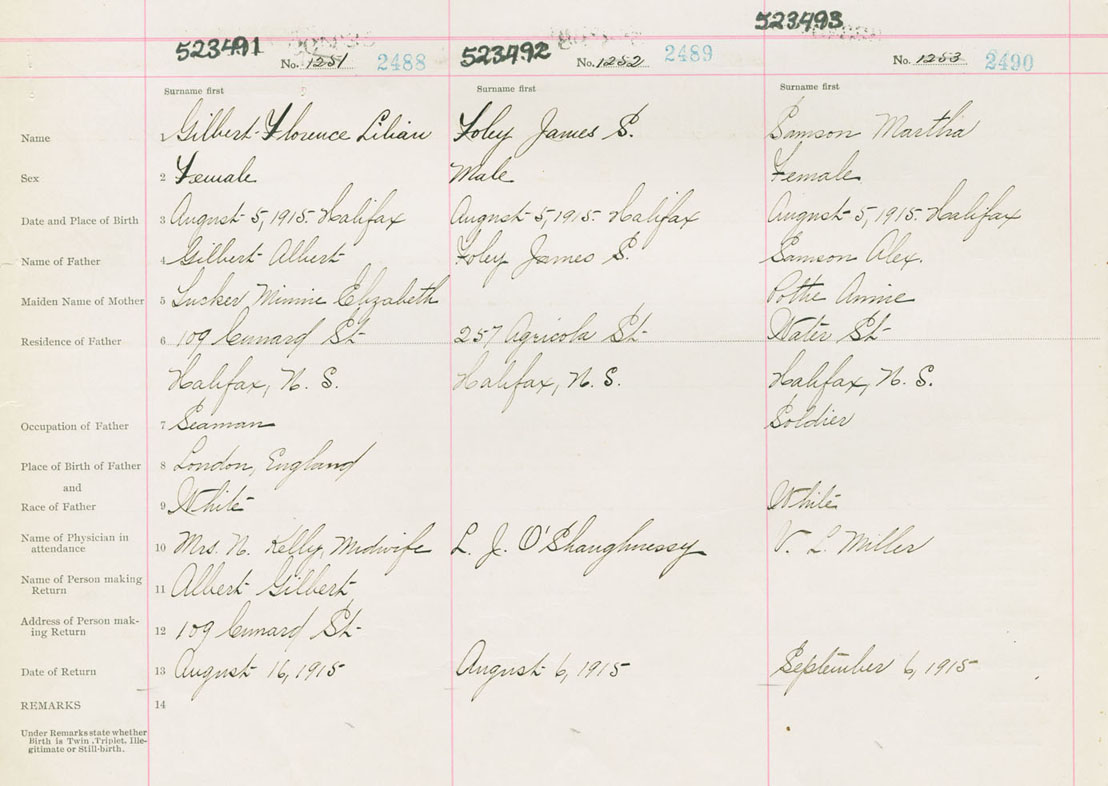 523491 523492 523493
No. 1251 2488 No. 1252 2489 No. 1253 2490
Surname first Surname first Surname first
Name Gilbert Florence Lilian Foley James S. Samson Martha
Sex 2 Female Male Female
Date and Place of Birth 3 August 5, 1915 Halifax August 5, 1915 Halifax August 5, 1915 Halifax
Name of Father 4 Gilbert Albert Foley James S. Samson Alex.
Maiden Name of Mother 5 Minnie Elizabeth Pothe Annie
Residence of Father 6 109 Cunard St 257 Agricola St Water St
Halifax, N. S. Halifax, N. S. Halifax, N. S.
Occupation of Father 7 Seaman Soldier
Place of Birth of Father 8 London, England
and
Race of Father 9 White White
Name of Physician in
attendance 10 Mrs. N. Kelly, Midwife L. J. O'Shaughnessy V. L. Miller
Name of Person making
Return 11 Albert Gilbert
Address of Person mak-
ing Return 12 109 Cunard St
Date of Return 13 August 16, 1915 August 6, 1915 September 6, 1915
REMARKS 14
Under Remarks state whether
Birth is Twin, Triplet, Ille-
gitimate or Still-birth.